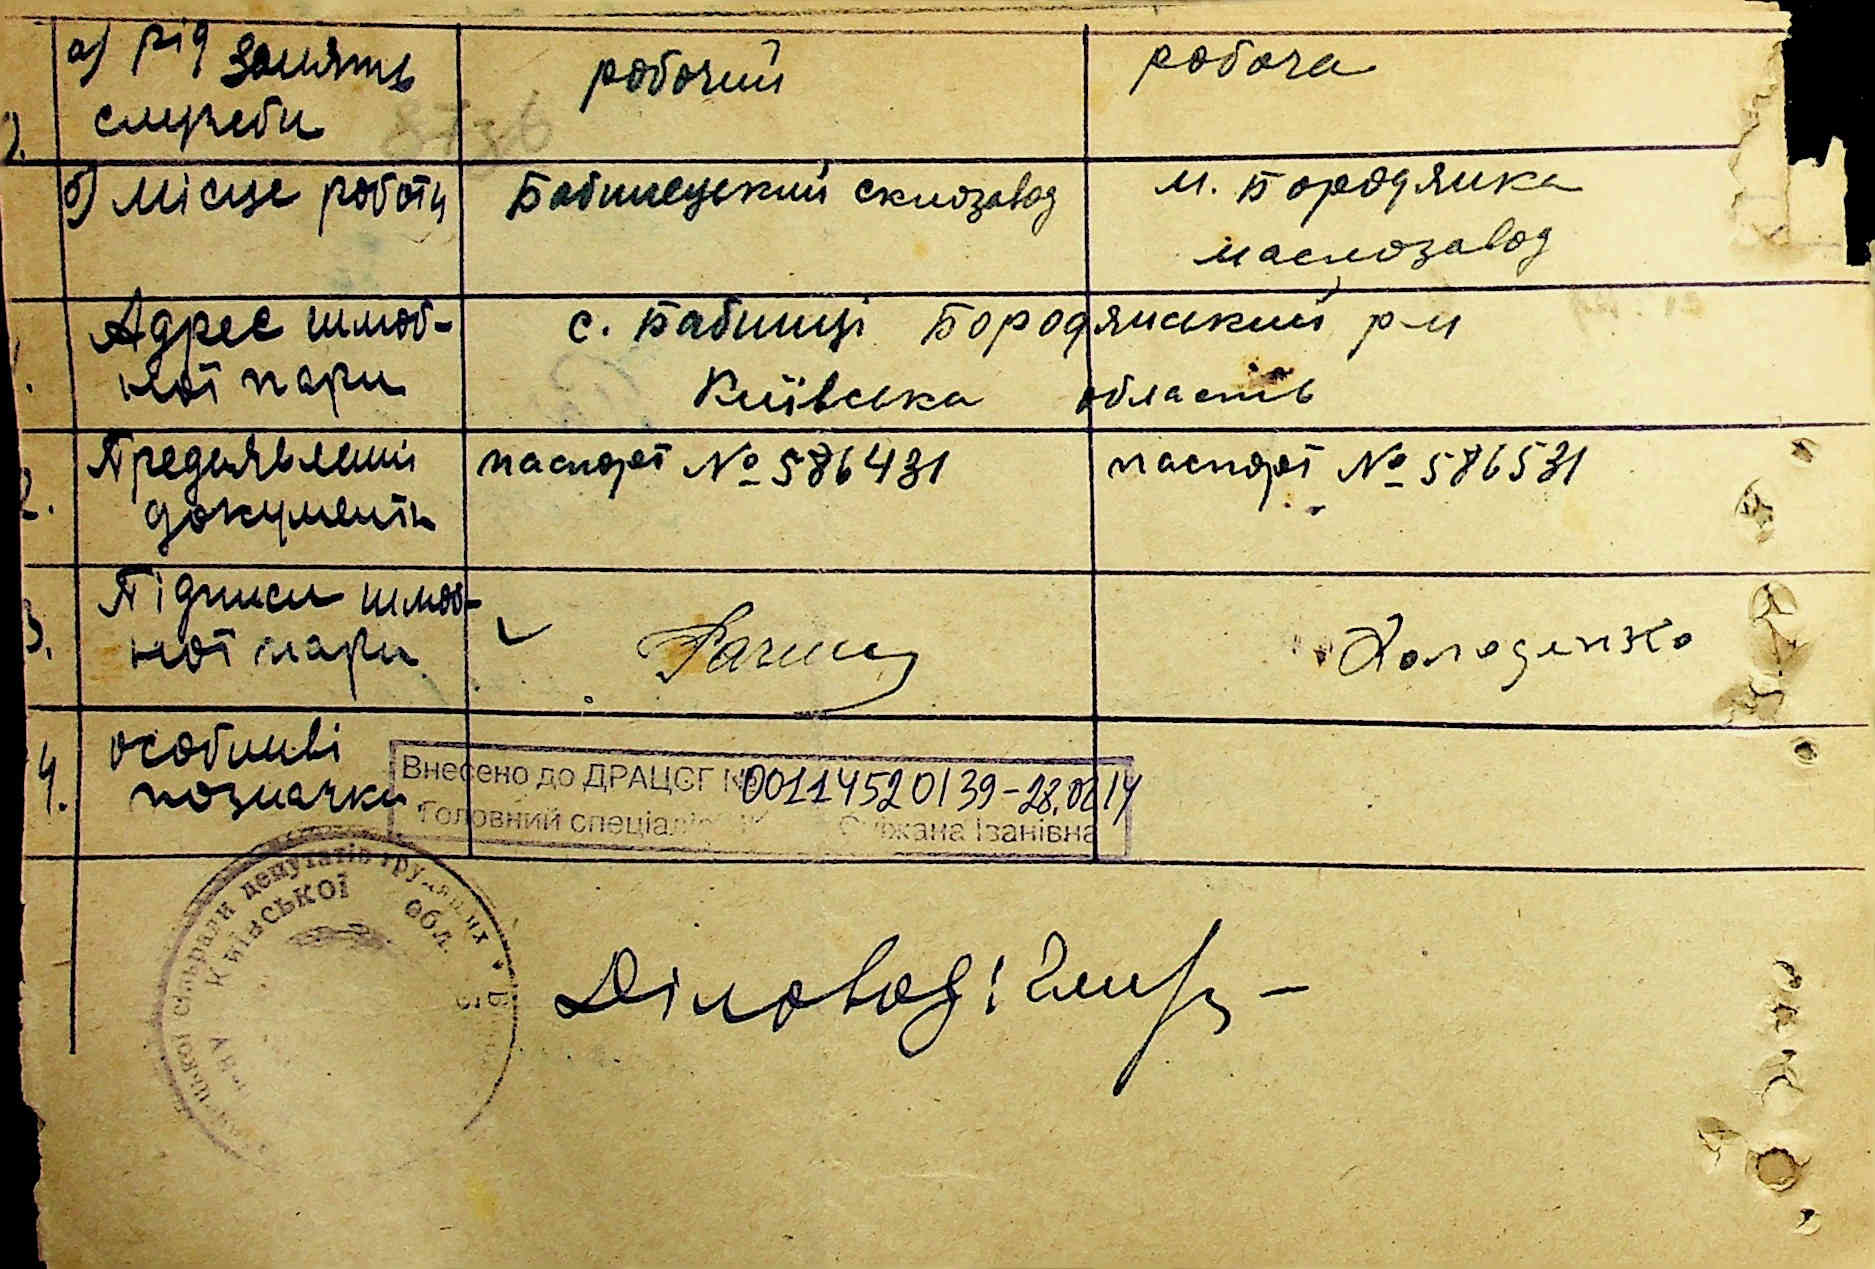 а) рід занять
служби
робочий
робоча
б) місце роботи
Бабинецький склозавод
м. Бородянка
маслозавод
Адрес шлюб-
ної пари
с. Бабинці Бородянський р-н
Київська область
Предъявлені
документи
паспорт № 586431
паспорт № 586531
3.
Підписи шлюб-
ної пари
Холоденко
4.
особливі
позначки
Внесено до ДРАЦСГ № 00114520139-28.02.14
Головний спеціаліс Сніжана Іванівна
сільради депутатів трудящих
Київської обл.
Діловод: